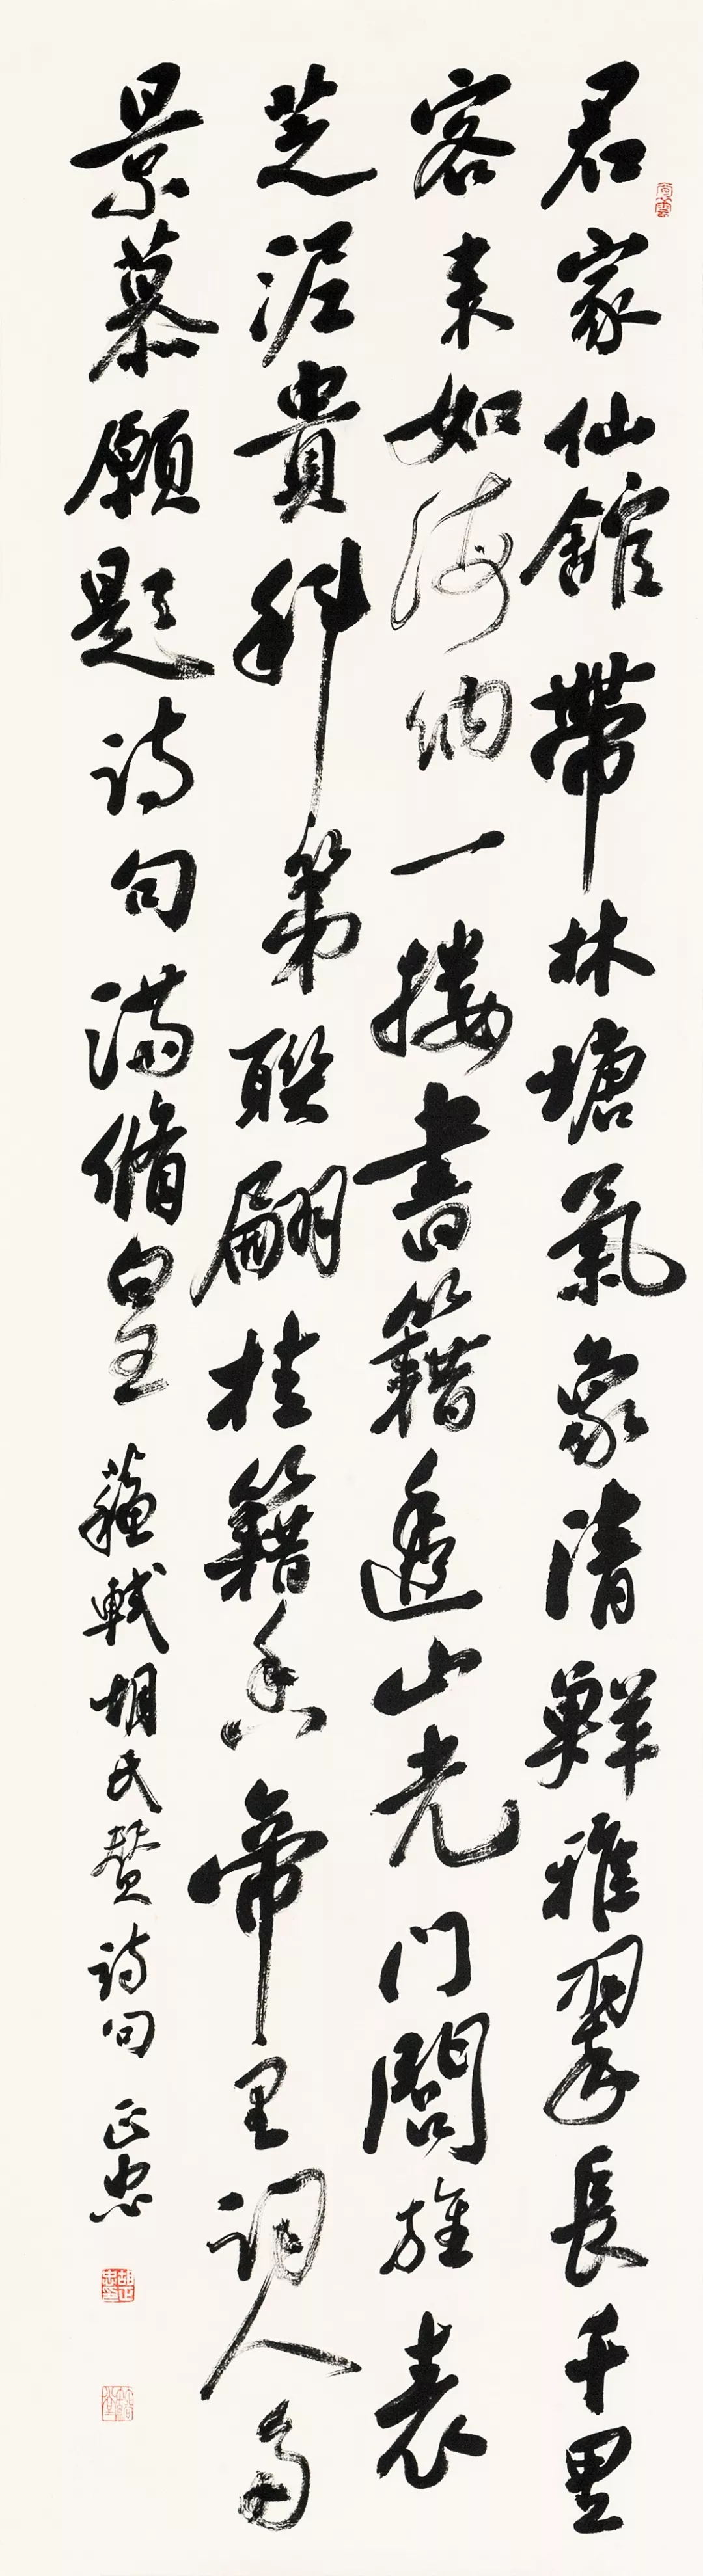 君家仙館帶林塘氣象清鮮雅翠長千里
客來如海納一樓書籍透山光門閭旌表
芝泥貴科第聯翩桂籍香帝里詞人多
景慕願題詩句滿脩皇 蘇軾胡氏贊詩句 正忠